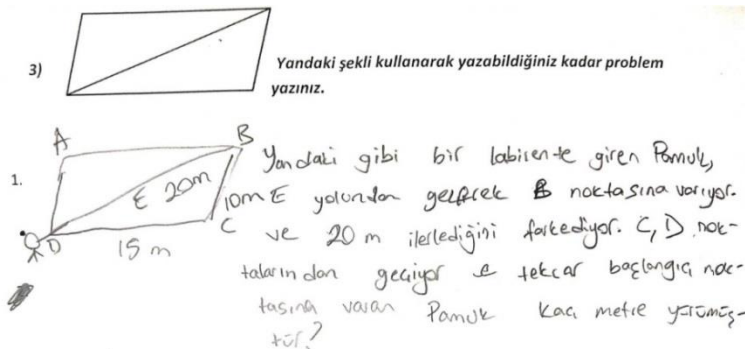 3)
Yandaki şekli kullanarak yazabildiğiniz kadar problem
yazınız.
1.
A
B
E 20m
10m
C
D
15 m
Yandaki gibi bir labirente giren Pamuk,
E yolundan geçerek B noktasına varıyor.
ve 20 m ilerlediğini farkediyor. C, D nok-
talarından geçiyor tekrar başlangıç nok-
tasına varan Pamuk kaç metre yürümüş-
tür?